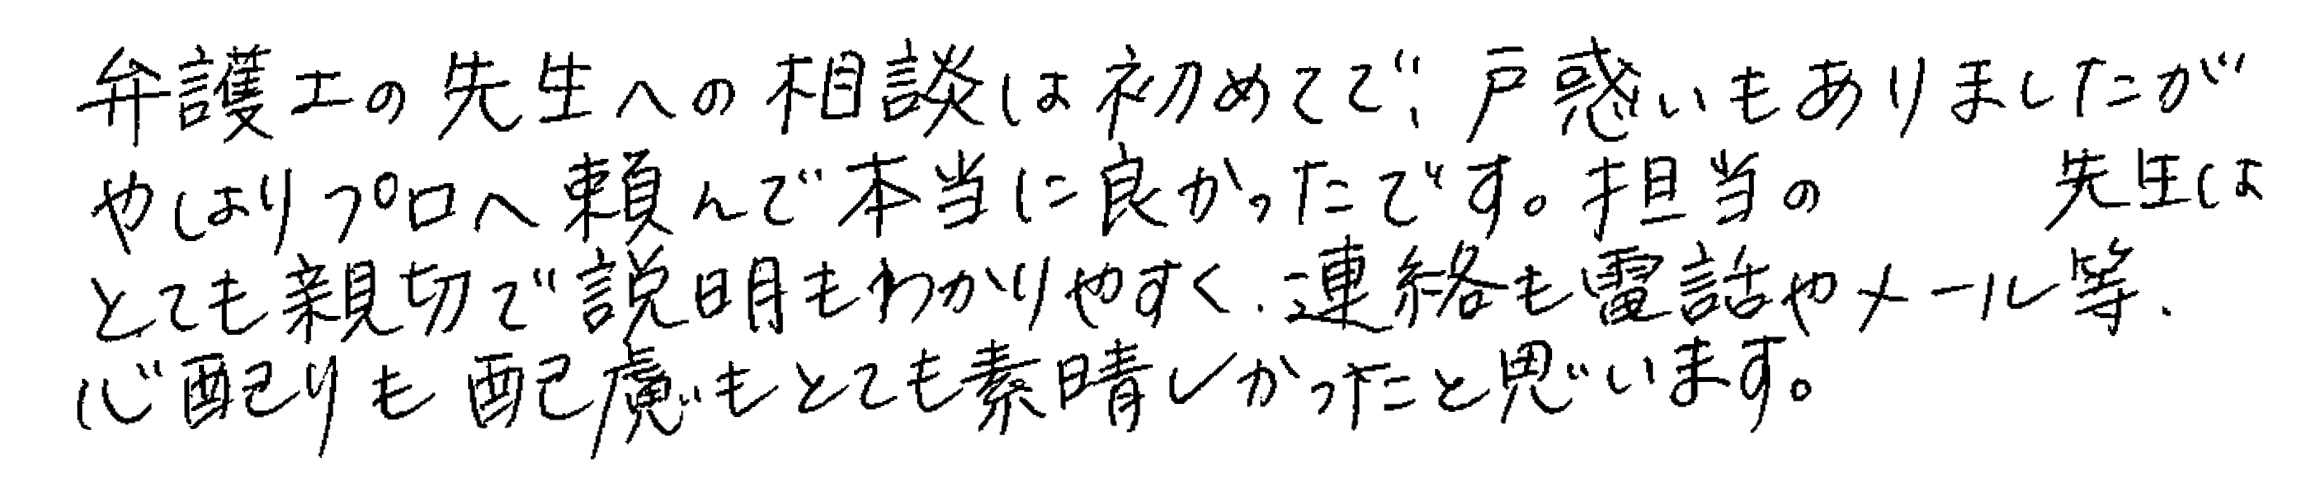 弁護士の先生への相談は初めてで、戸惑いもありましたが
やはりプロへ頼んで本当に良かったです。担当の 先生は
とても親切で説明もわかりやすく、連絡も電話やメール等、
心配りも配慮もとても素晴しかったこと思います。